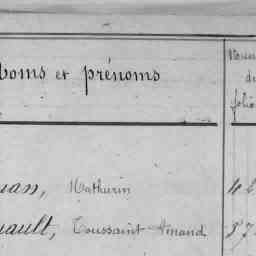 Noms et prénoms
du
folio
uan, Mathurin
uault, Toussaint Amand